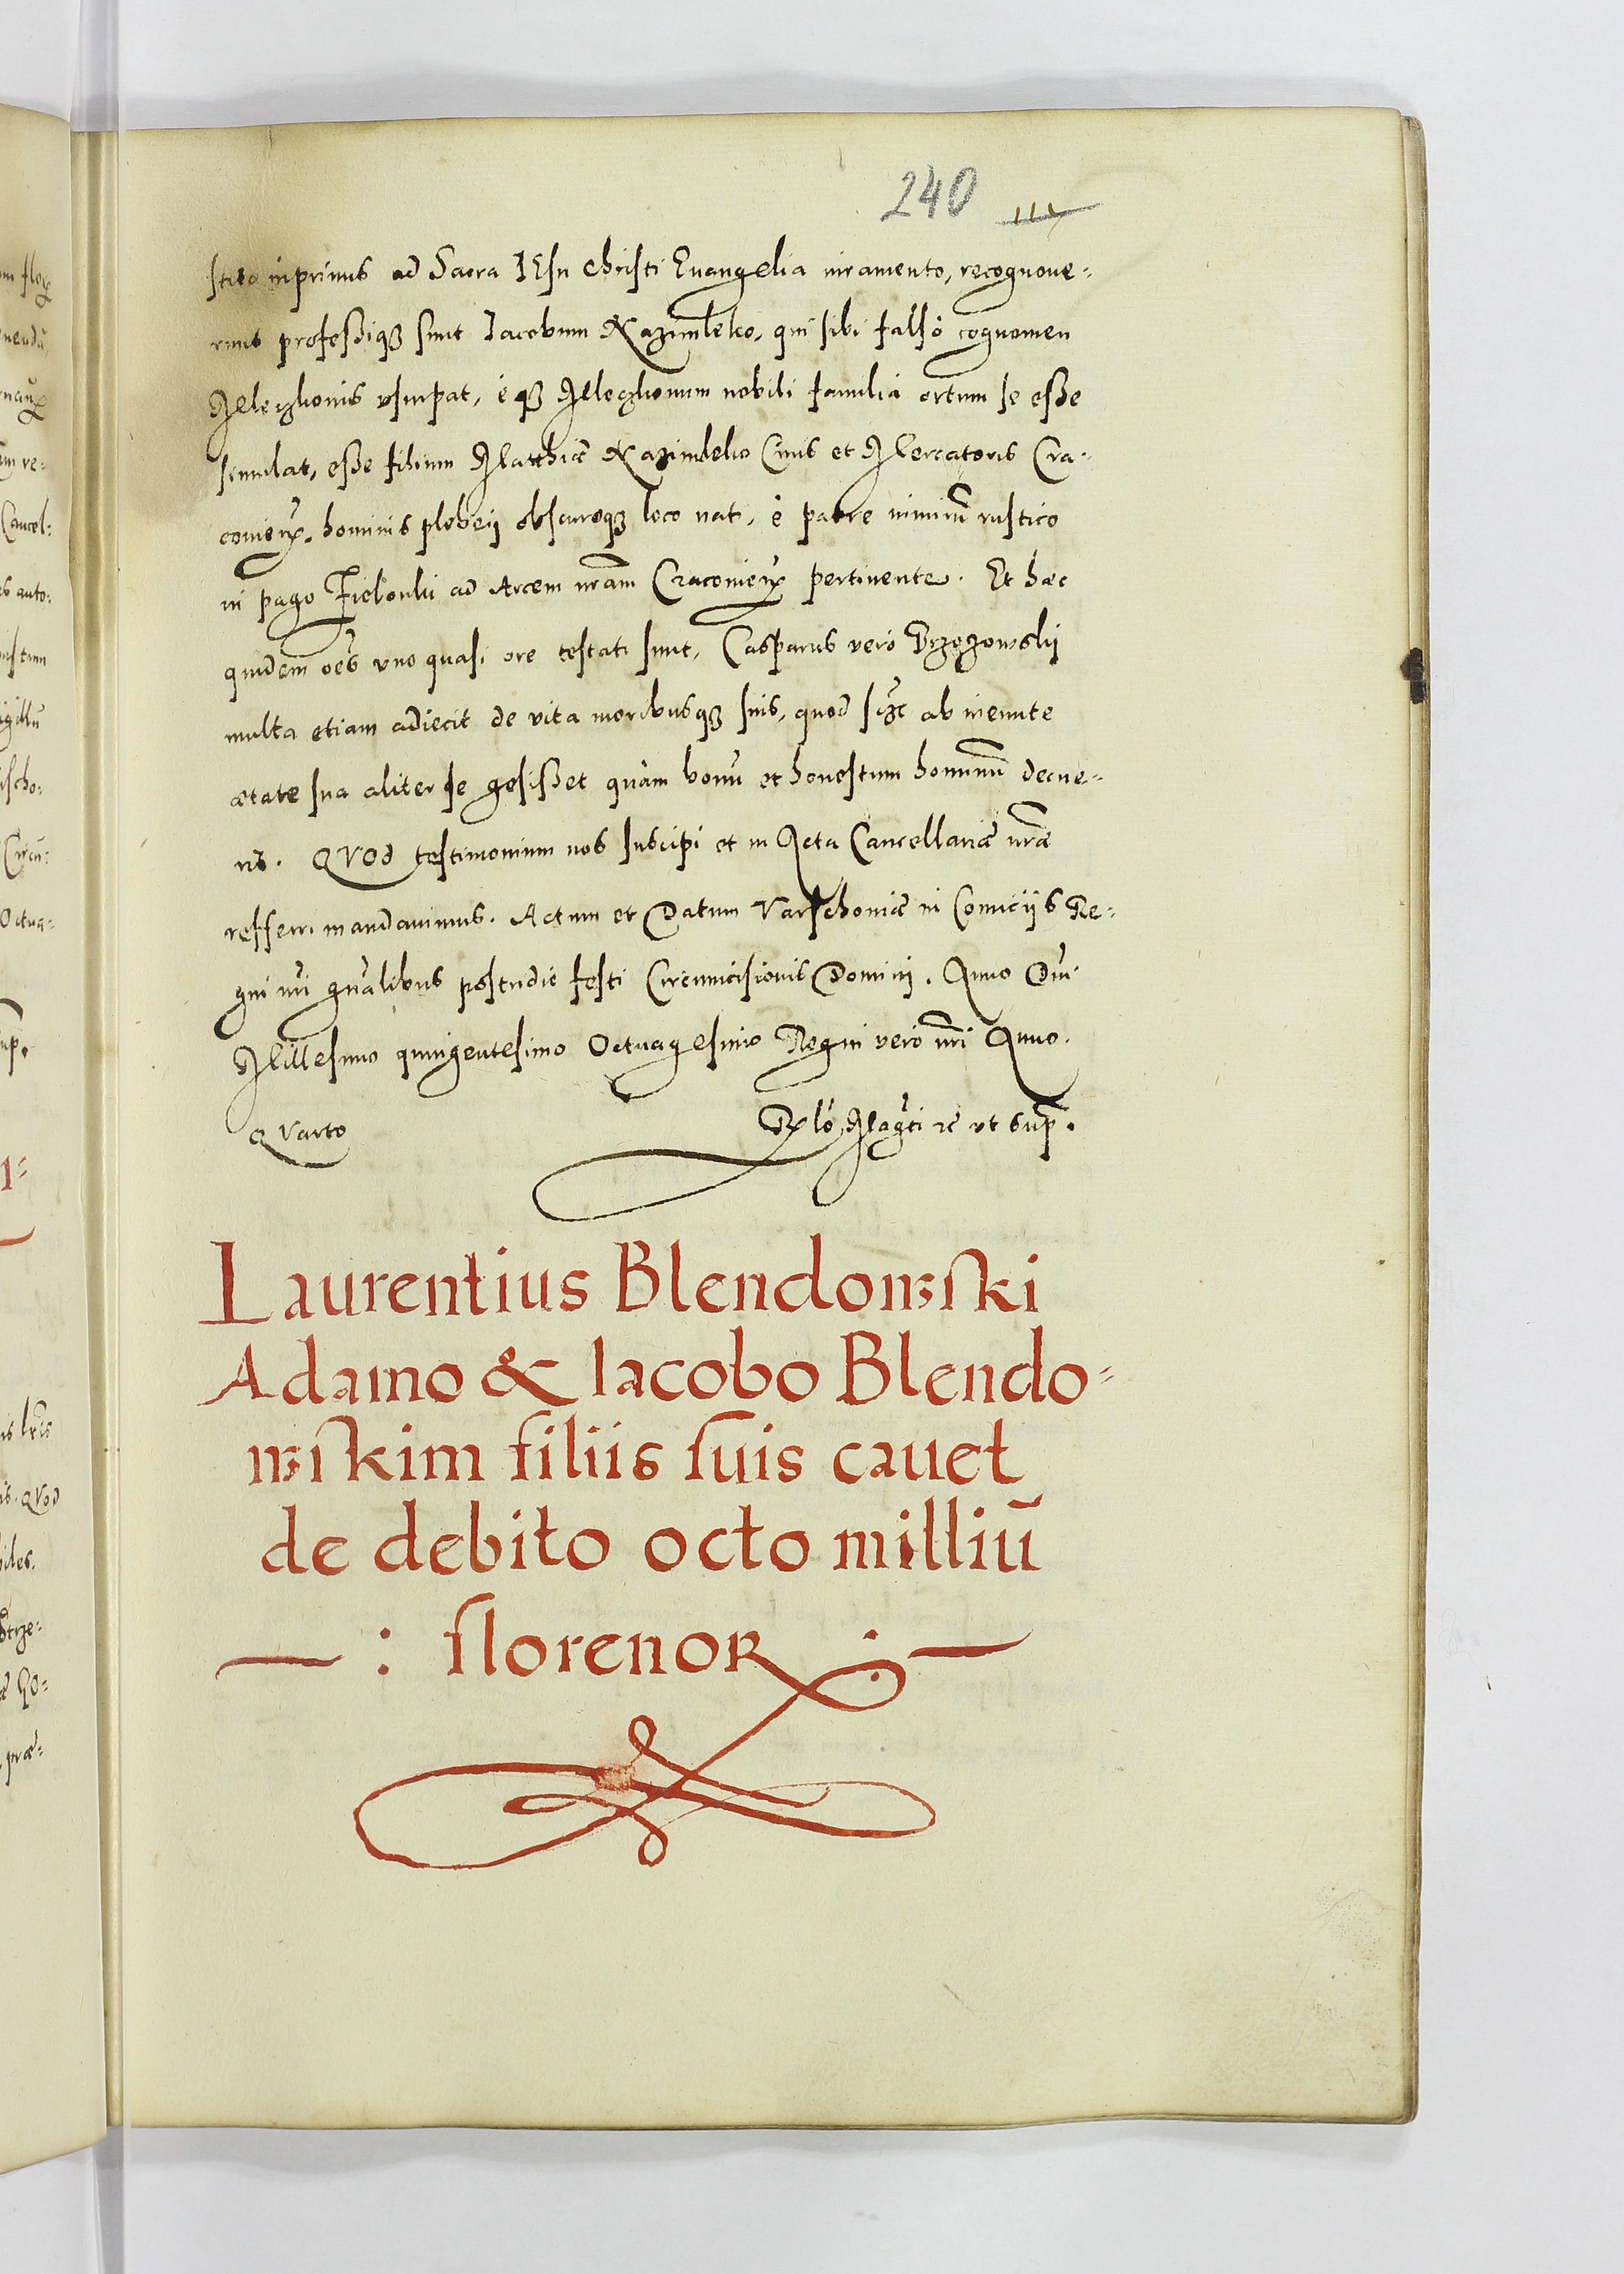 240
stito inprimis ad Sacra IEsu Christi Euangelia iuramento, recognoue-
runt professiq3 sunt Iacobum Kazimleko, qui sibi falsò cognomen
vsurpat, è q3 nobili familia ortum se esse
simulat, esse filium Matthiæ Kazimleko Ciuis et Mercatoris Cra-
couień. hominis plebeij obscuroq3 loco nati, è patre nimirũ rustico
in pago ad Arcem nrãm Cracouień pertinente. Et hæc
quidem oẽs vno quasi ore testati sunt, Casparus verò Brzozowskij
multa etiam adiecit de vita moribusq3 suis, quod ab ineunte
ætate sua aliter se gesisset quàm bonũ et honestum hominũ decue-
rit. QVOd testimonium nos suscipi et in Acta Cancellariæ nrãe
refferri mandauimus. Actum et Datum Varschouiæ in Comicijs Re-
gni nri gnãlibus postridie festi Circumcisionis Domini. Anno Dni
Millesimo quingentesimo Octuagesimo Regni verò nri Anno.
Qvarto
Rlõ Magci rc vt sup.
Laurentius Blendowski
Adamo & Iacobo Blendo-
wskim filiis suis cauet
de debito octo milliũ
: florenoR :